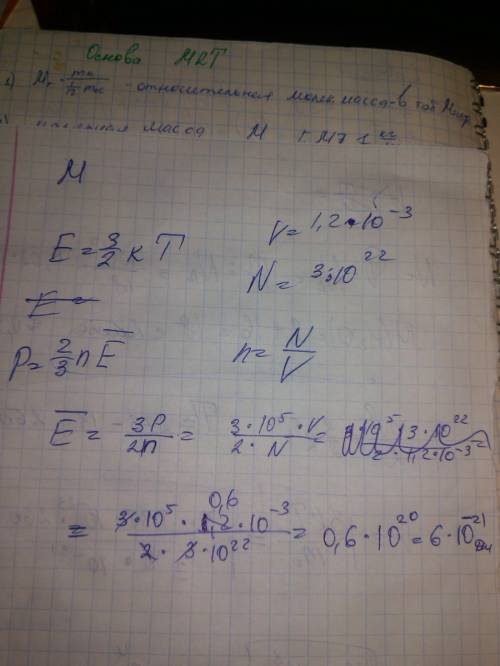 Основа МКТ
1) Mr = m₀ / 1/12 mc - относительная молек. масса - в таб.
масса М [M] 1 кг
М
E = 3/2 k T V = 1,2 · 10⁻³
E = N = 3 · 10²²
p = 2/3 n E̅ n = N / V
E̅ = 3P / 2n = 3 · 10⁵ · V / 2 · N =
= 3 · 10⁵ · 1,2 · 10⁻³ / 2 · 3 · 10²² = 0,6 · 10²⁰ = 6 · 10⁻²¹ Дж
0,6